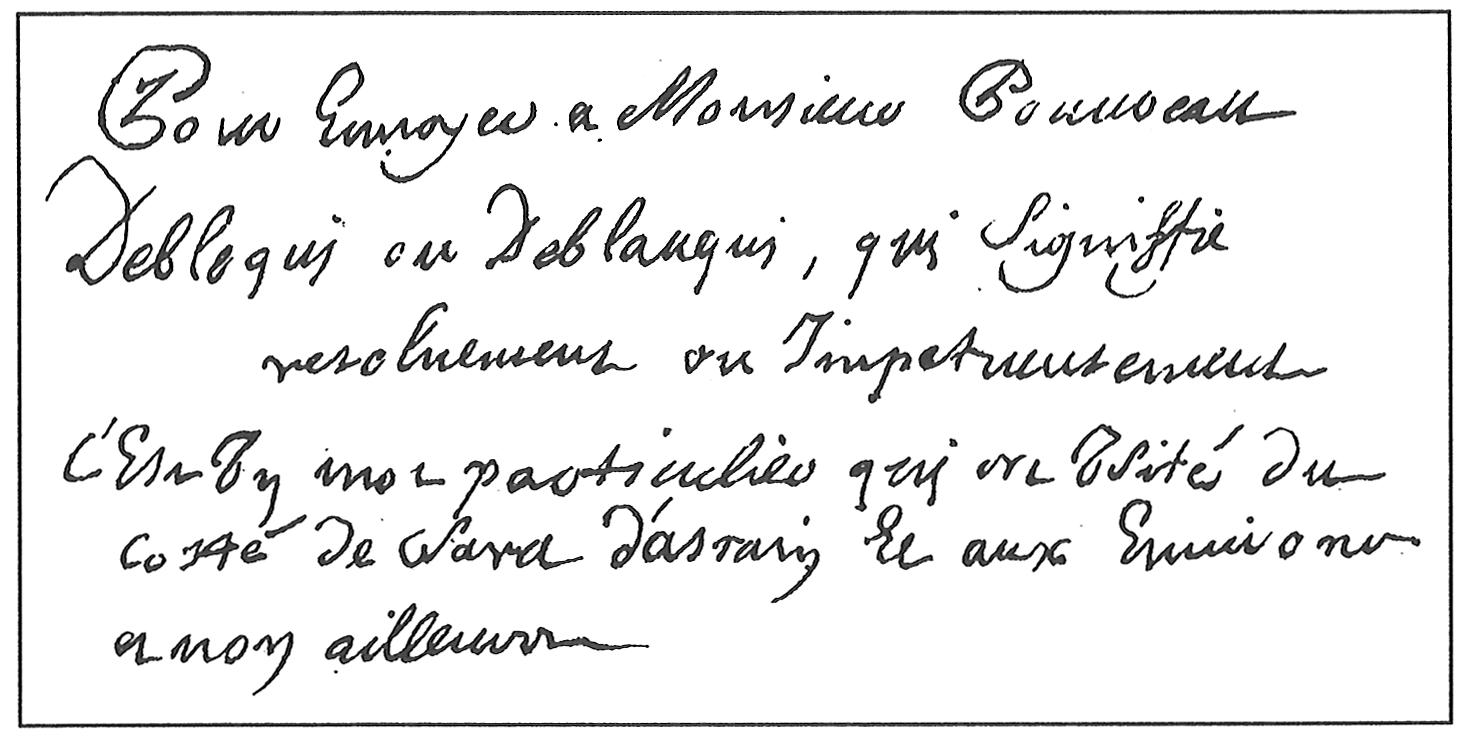 Pour Envoyer a Monsieur Bonneveau
Debloquis ou Deblauquis, qui Signiffie
resoluement ou Impetueusement
c'Est Vn mot particulier qui est Vsité du
costé de d'astarin Et aux Environs
et non ailleurs